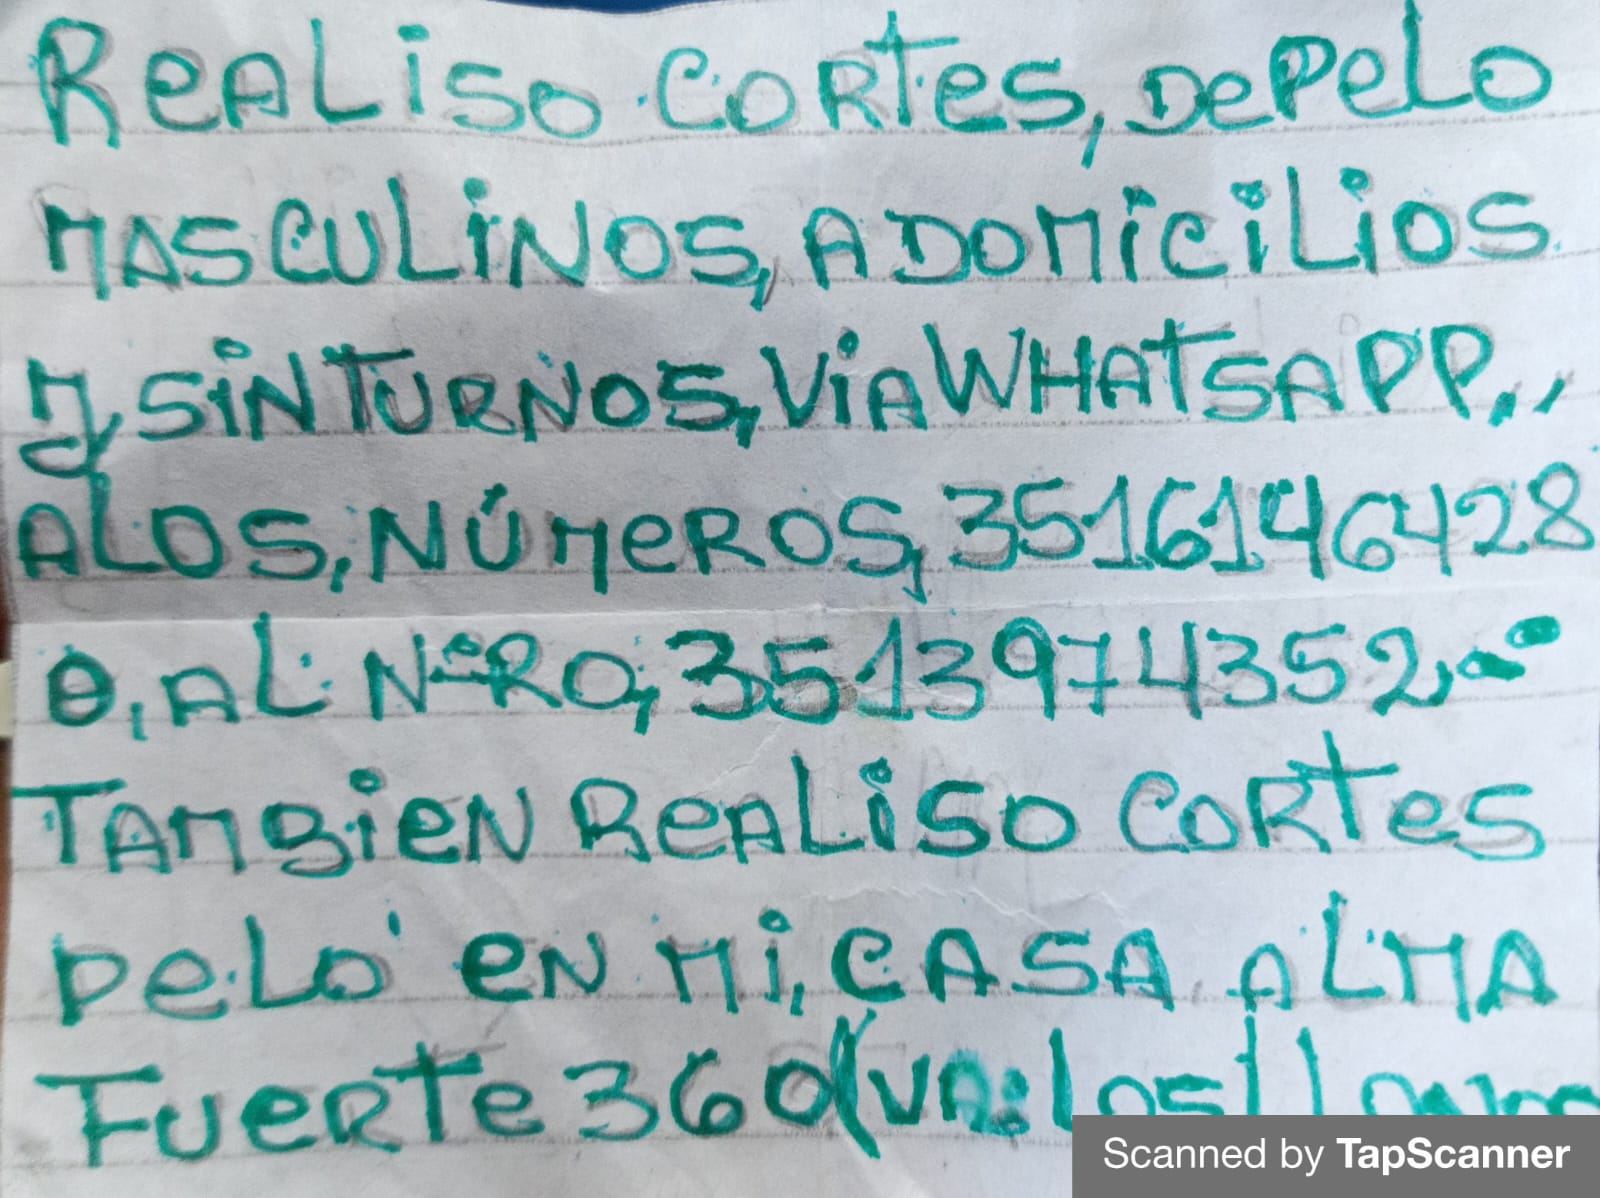 ReALiso CORtes, DePeLO
MASCULiNOS, A DOMiCiLiOS
y, SiN TURNOS, ViA WHATSAPP,,
ALOS, NÚMeROS, 3516146428
O, AL NeRO, 3513974352,
TAMBieN ReALiSO CORtes
PeLO eN Mi, CASA, ALMA
FUeRte 360 (
Scanned by TapScanner